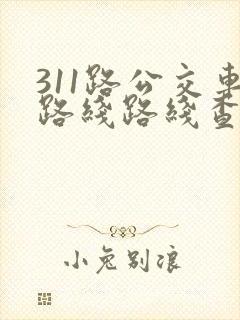 311路公交车
路线路线查
小兔别浪